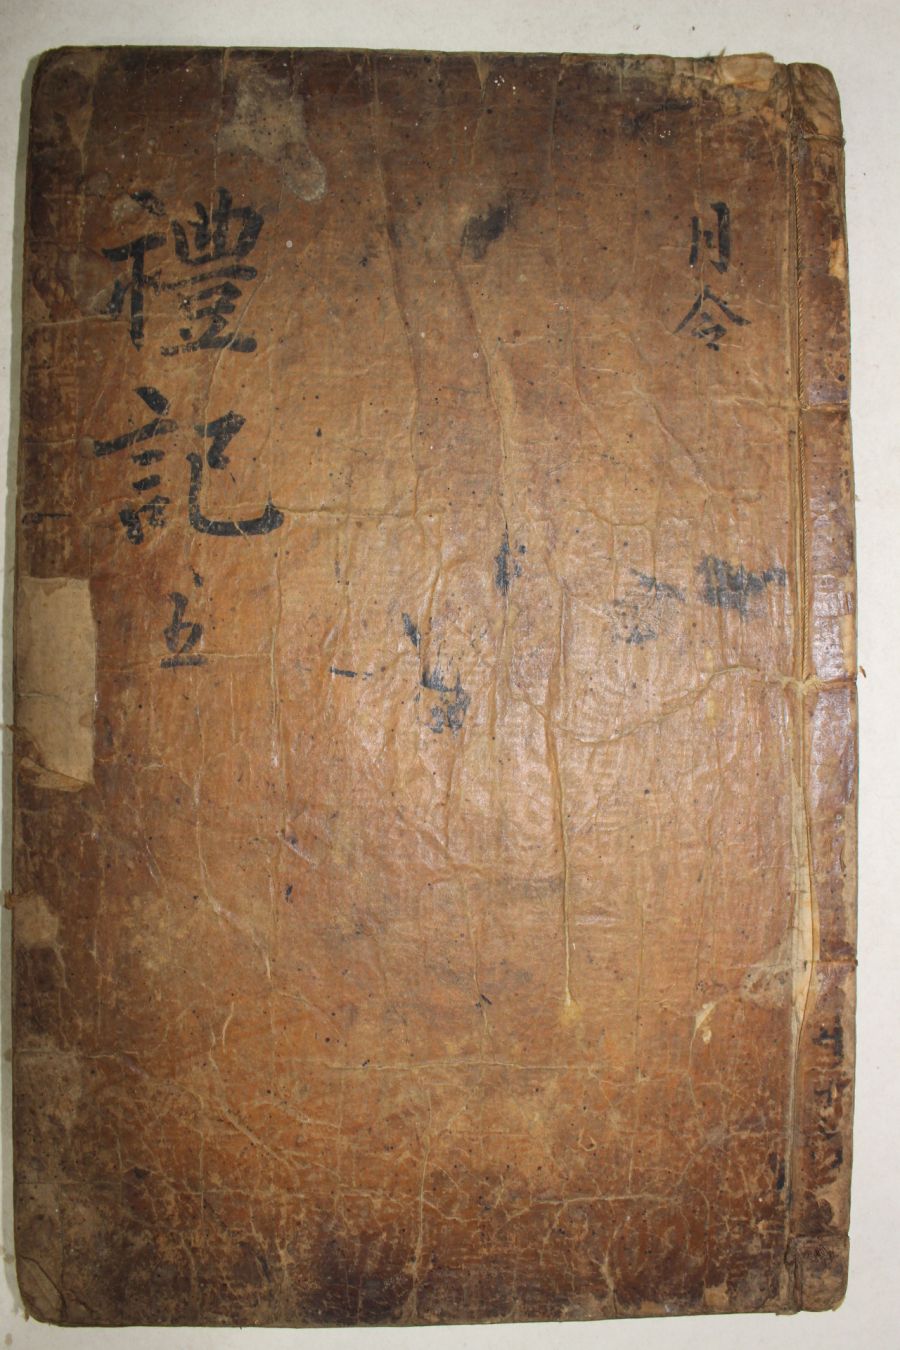 月令
禮記 五